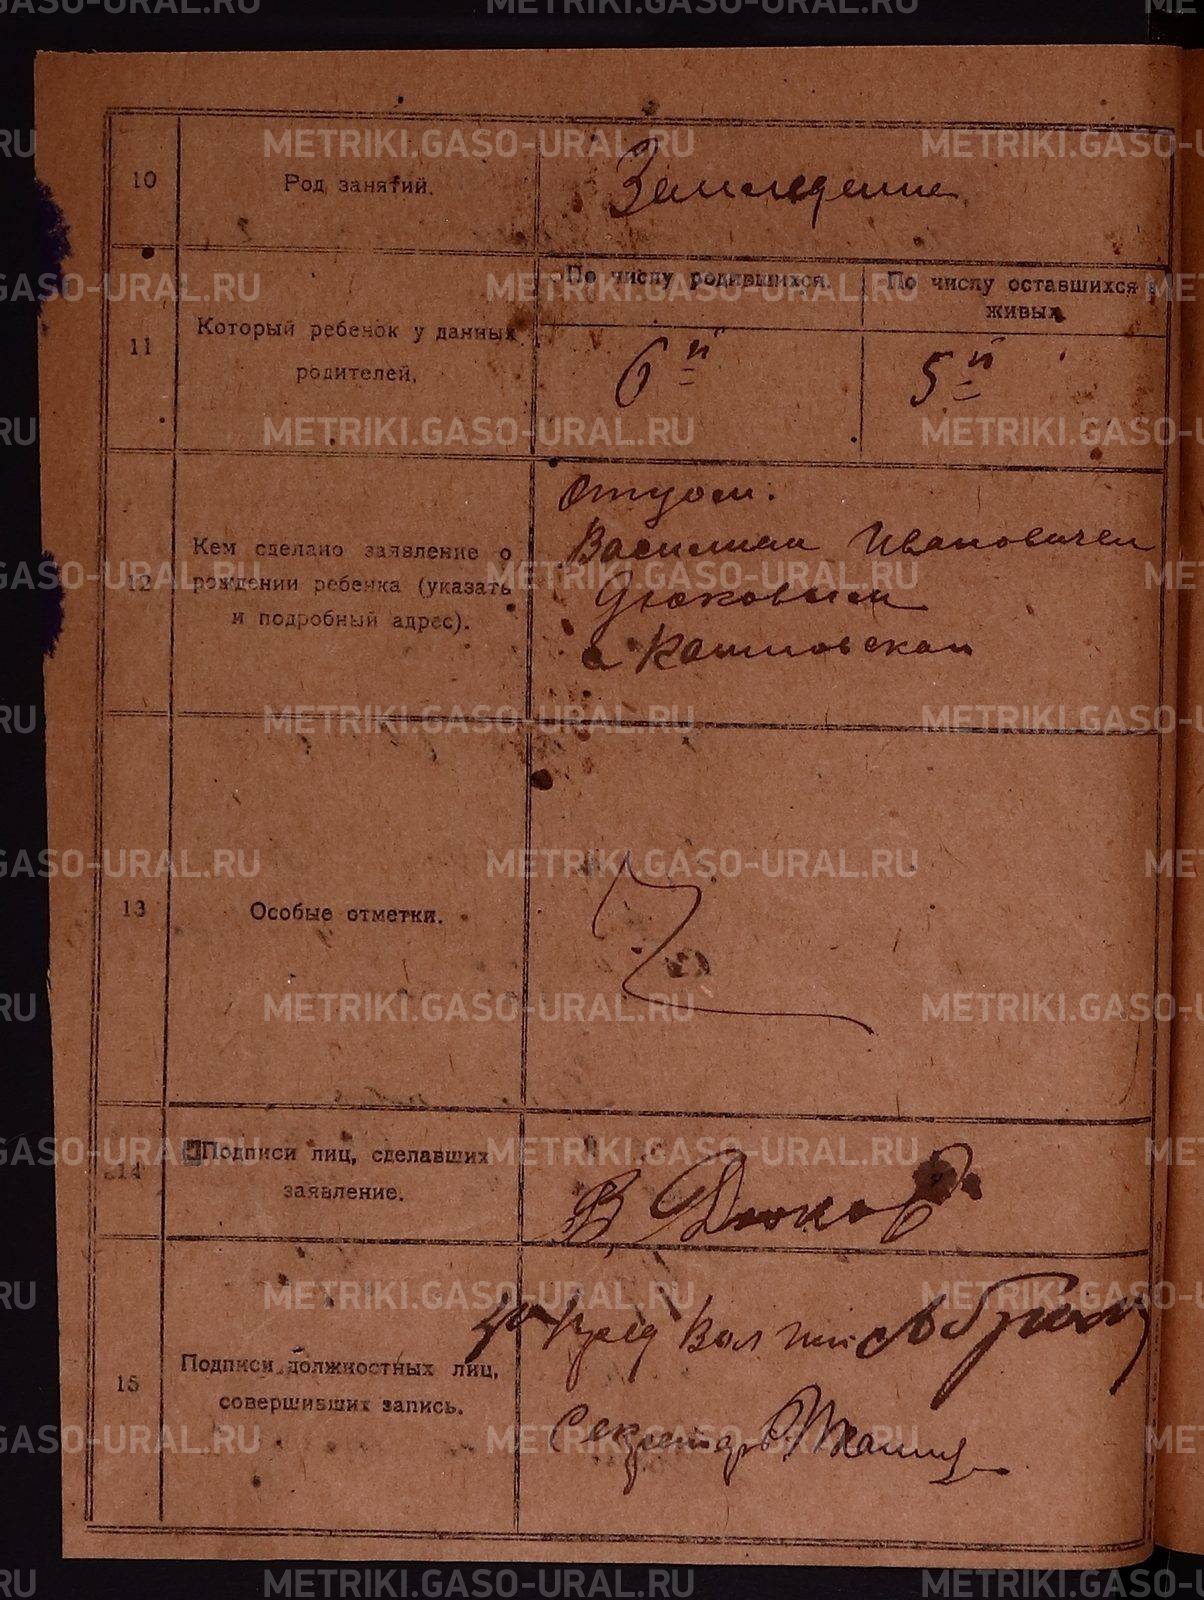 10
Род занятий.
Земледелие
11
Который ребенок у данных
родителей.
По числу родившихся.
6й
По числу оставшихся в
живых
5й
12
Кем сделано заявление о
рождении ребенка (указать
и подробный адрес).
Отцом.
Василием Ивановичем
Дюковым
13
Особые отметки.
14
Подписи лиц, сделавших
заявление.
В. Дюков
15
Подписи должностных лиц,
совершивших запись.
Пред Вол
Секретарь
METRIKI.GASO-URAL.RU